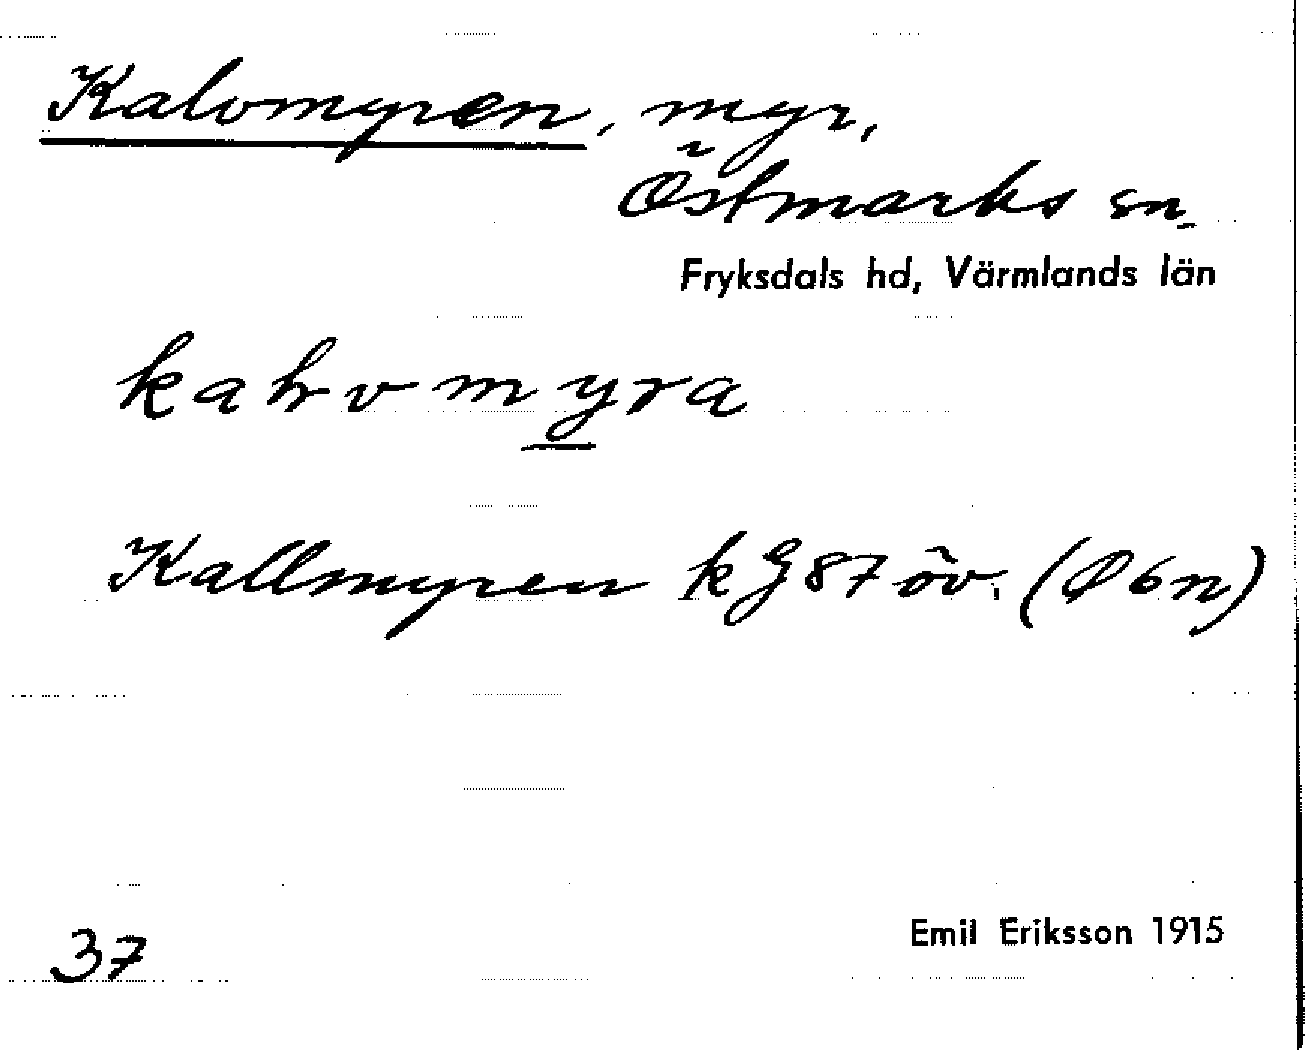 Kalvmyren, myr,
Östmarks sn.
Fryksdals hd, Värmlands län
kahvmyra
Kallmyren kG 87 öv. (Ø6n)
37
Emil Eriksson 1915